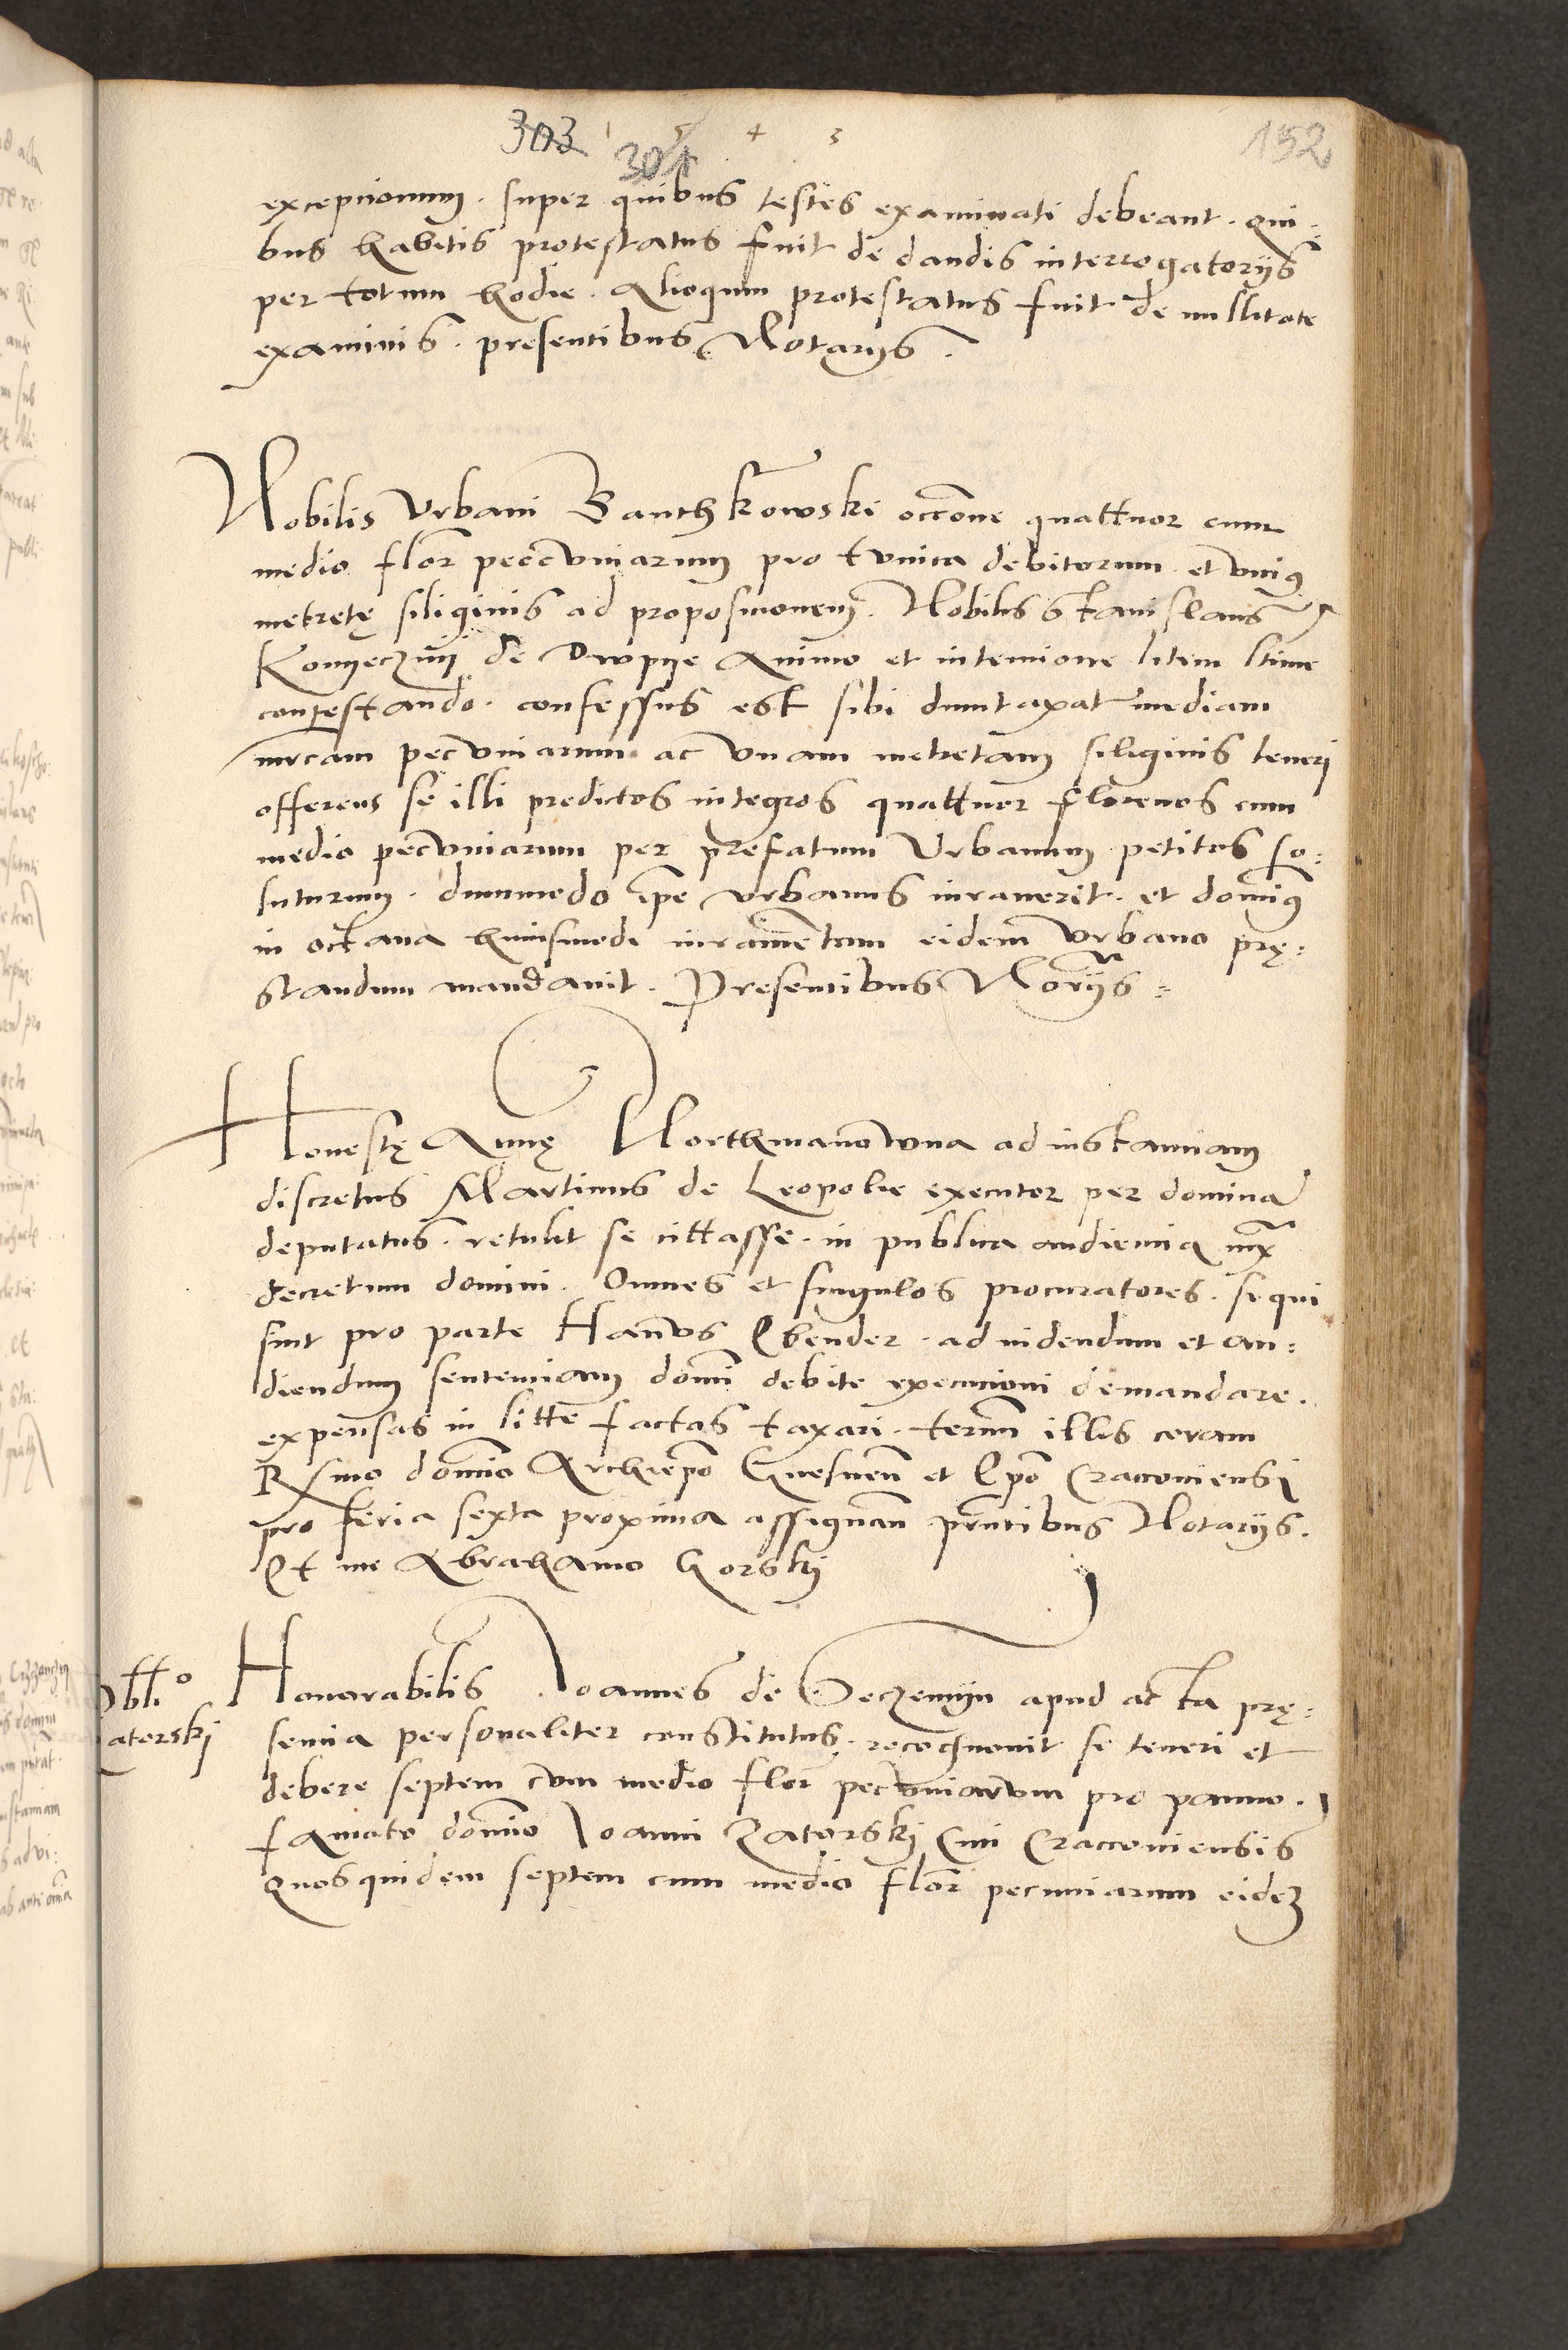 303 1 5 4 3 152
301
exceptionum. super quibus testes examinati debeant. qui:
bus habitis protestatus fuit de dandis interrogatorijs
per totum hodie. Alioquin protestatus fuit de nullitate
examinis. presentibus Notarijs.
Nobilis Vrbani Banthkowski occōne quattuor cum
medio flor̄ peccuniarum pro tunica debitorum et vniꝰ
metretę siliginis ad propositionem. Nobilis Stanislaus
Konyeczny de Dwpye Animo et intentione litem ltime
contestando. confessus est sibi dumtaxat mediam
mrcam pecuniarum ac vnam metretam siliginis teneri
offerens se illi predictos integros quattuor florenos cum
medio pecuniarum per prefatum Vrbanum petitos so:
luturum. dummodo ipē Vrbanus iurauerit. et domīꝰ
in octaua huiusmodi iuramētum eidem Vrbano prę:
standum mandauit. Presentibus Norijs:
Honestę Annę Northmanowna ad instantiam
discretus Martinus de Leopoli executor per dominū
deputatus. retulit se cittasse. in publica audientia iux̄
decretum domini. Omnes et singulos procuratores. si qui
sint pro parte Hannos Ebender. ad uidendum et au:
diendum sententiam domī debite executioni demandare.
expensas in litte factas taxari. termī illis coram
Rsmo domīo Archiepō Gnesneñ et Epō Cracouiensi
pro feria sexta proxima assignañ prntibus Notarijs.
Et me Abrahamo Gorskj
Obli^o
atorskj
Honorabilis Joannes de Seczemyn apud acta prę:
sentia personaliter constitutus. recognouit se teneri et
debere septem cum medio flor̄ pecuniarum pro panno.
famato domīo Joanni Zatorskj Ciui Cracouiensis
quos quidem septem cum medio flor̄ pecuniarum eidez